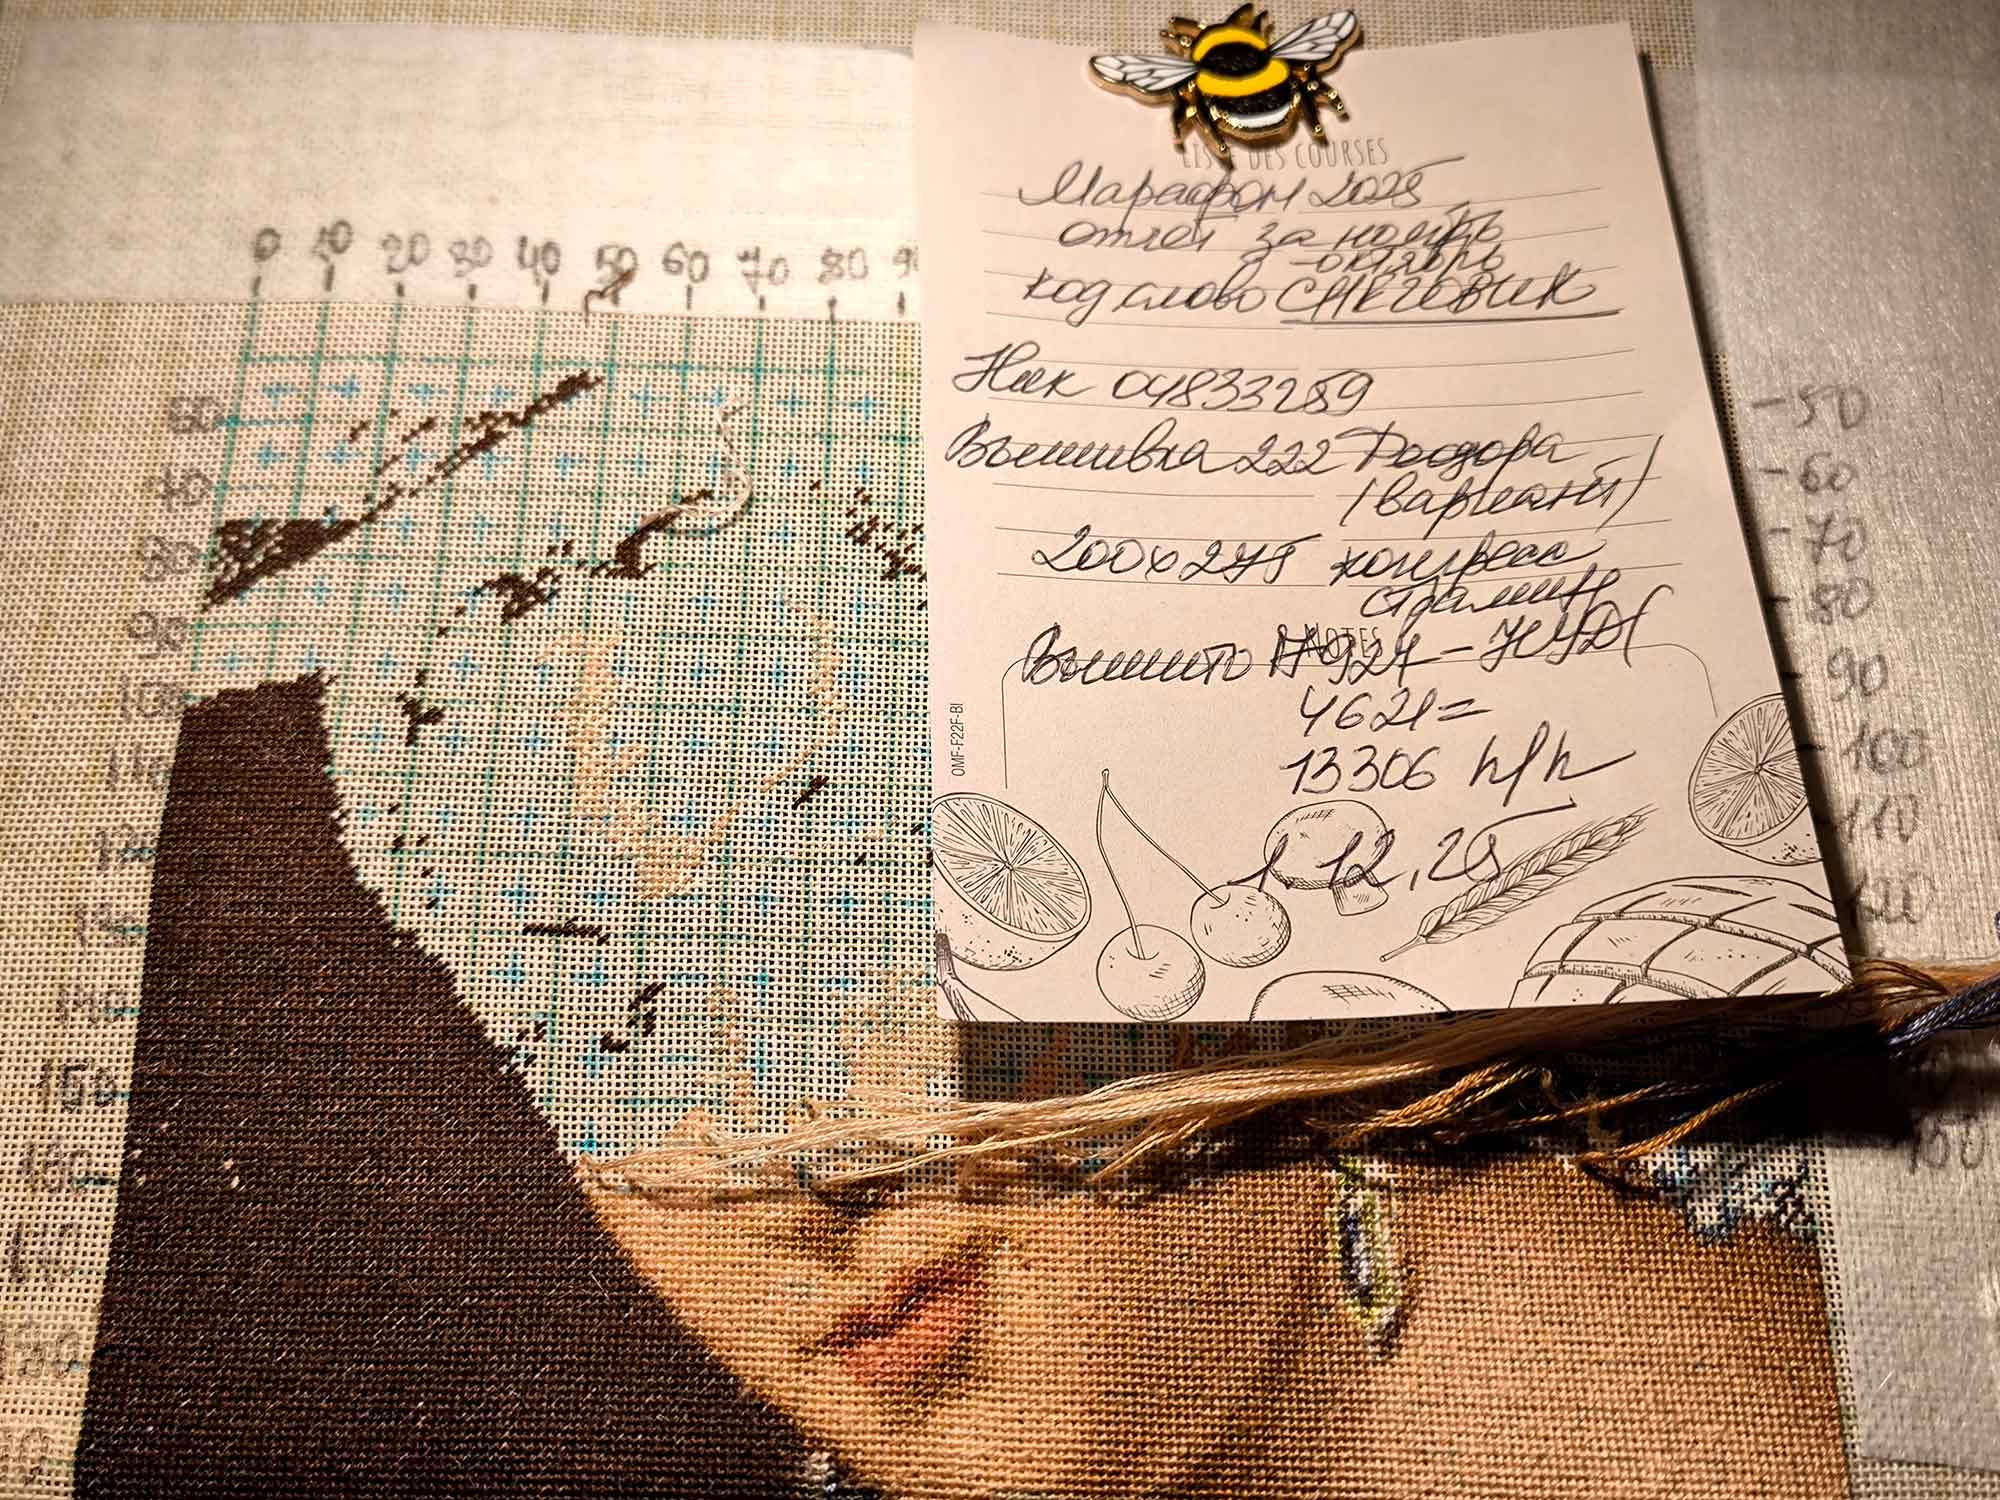 0 10 20 30 40 50 60 70 80 90
LISTE DES COURSES
Марафон 2025
отчет за ноябрь
октябрь
код слово СНЕГОВИК
Ник 04833259
Вышивка 222 Теодора
(вариант)
200х275 конгресс
страмин
NOTES
Вышито 17927 -
4621=
13306
1.12.25
OMF-F22F-BI
60
70
80
90
100
110
120
130
140
150
160
-50
-60
-70
-80
-90
-100
-110
120
150